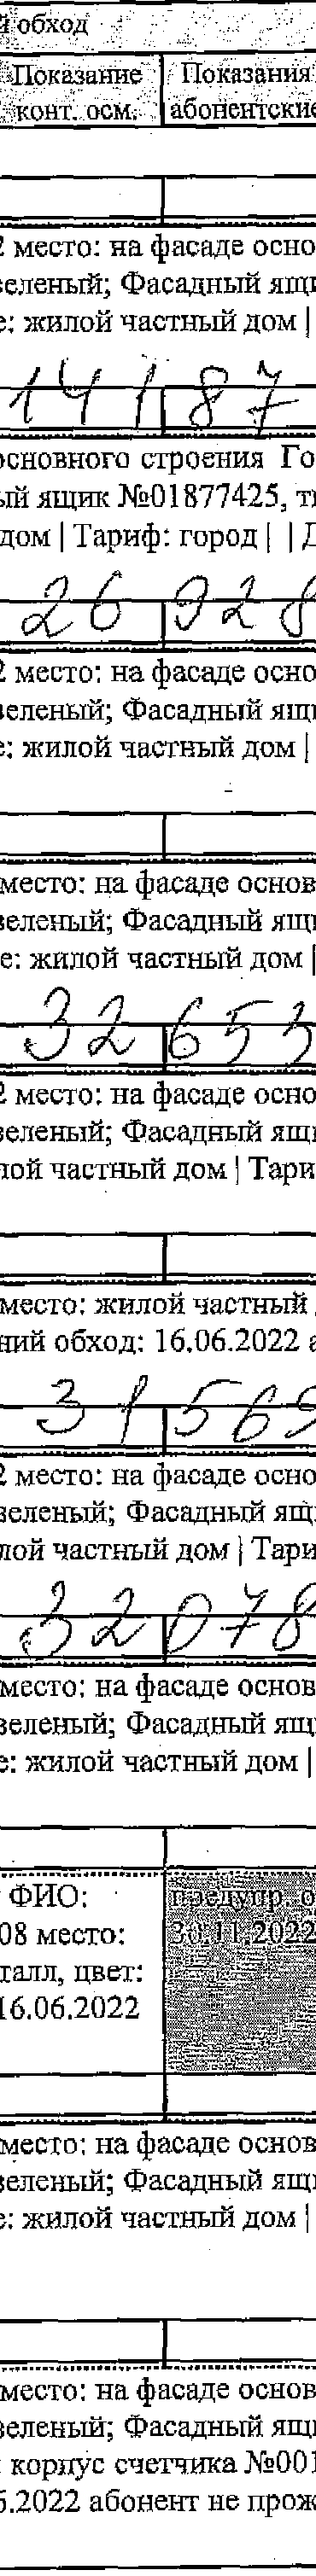 й обход
Показание Показания
конт. осм. абонентские
2 место: на фасаде осно
зеленый; Фасадный ящи
е: жилой частный дом |
14187
основного строения Го
ый ящик №01877425, ти
дом | Тариф: город | | Д
26928
2 место: на фасаде осно
зеленый; Фасадный ящи
е: жилой частный дом |
место: на фасаде основ
зеленый; Фасадный ящи
е: жилой частный дом |
32653
2 место: на фасаде осно
зеленый; Фасадный ящи
лой частный дом | Тари
место: жилой частный
ний обход: 16.06.2022 а
31569
2 место: на фасаде осно
зеленый; Фасадный ящ
лой частный дом | Тари
32078
место: на фасаде основ
зеленый; Фасадный ящи
е: жилой частный дом |
ФИО: предупр. о
08 место: 30.11.2022
талл, цвет:
16.06.2022
место: на фасаде основ
зеленый; Фасадный ящи
е: жилой частный дом |
место: на фасаде основ
зеленый; Фасадный ящи
корпус счетчика №001
6.2022 абонент не прож